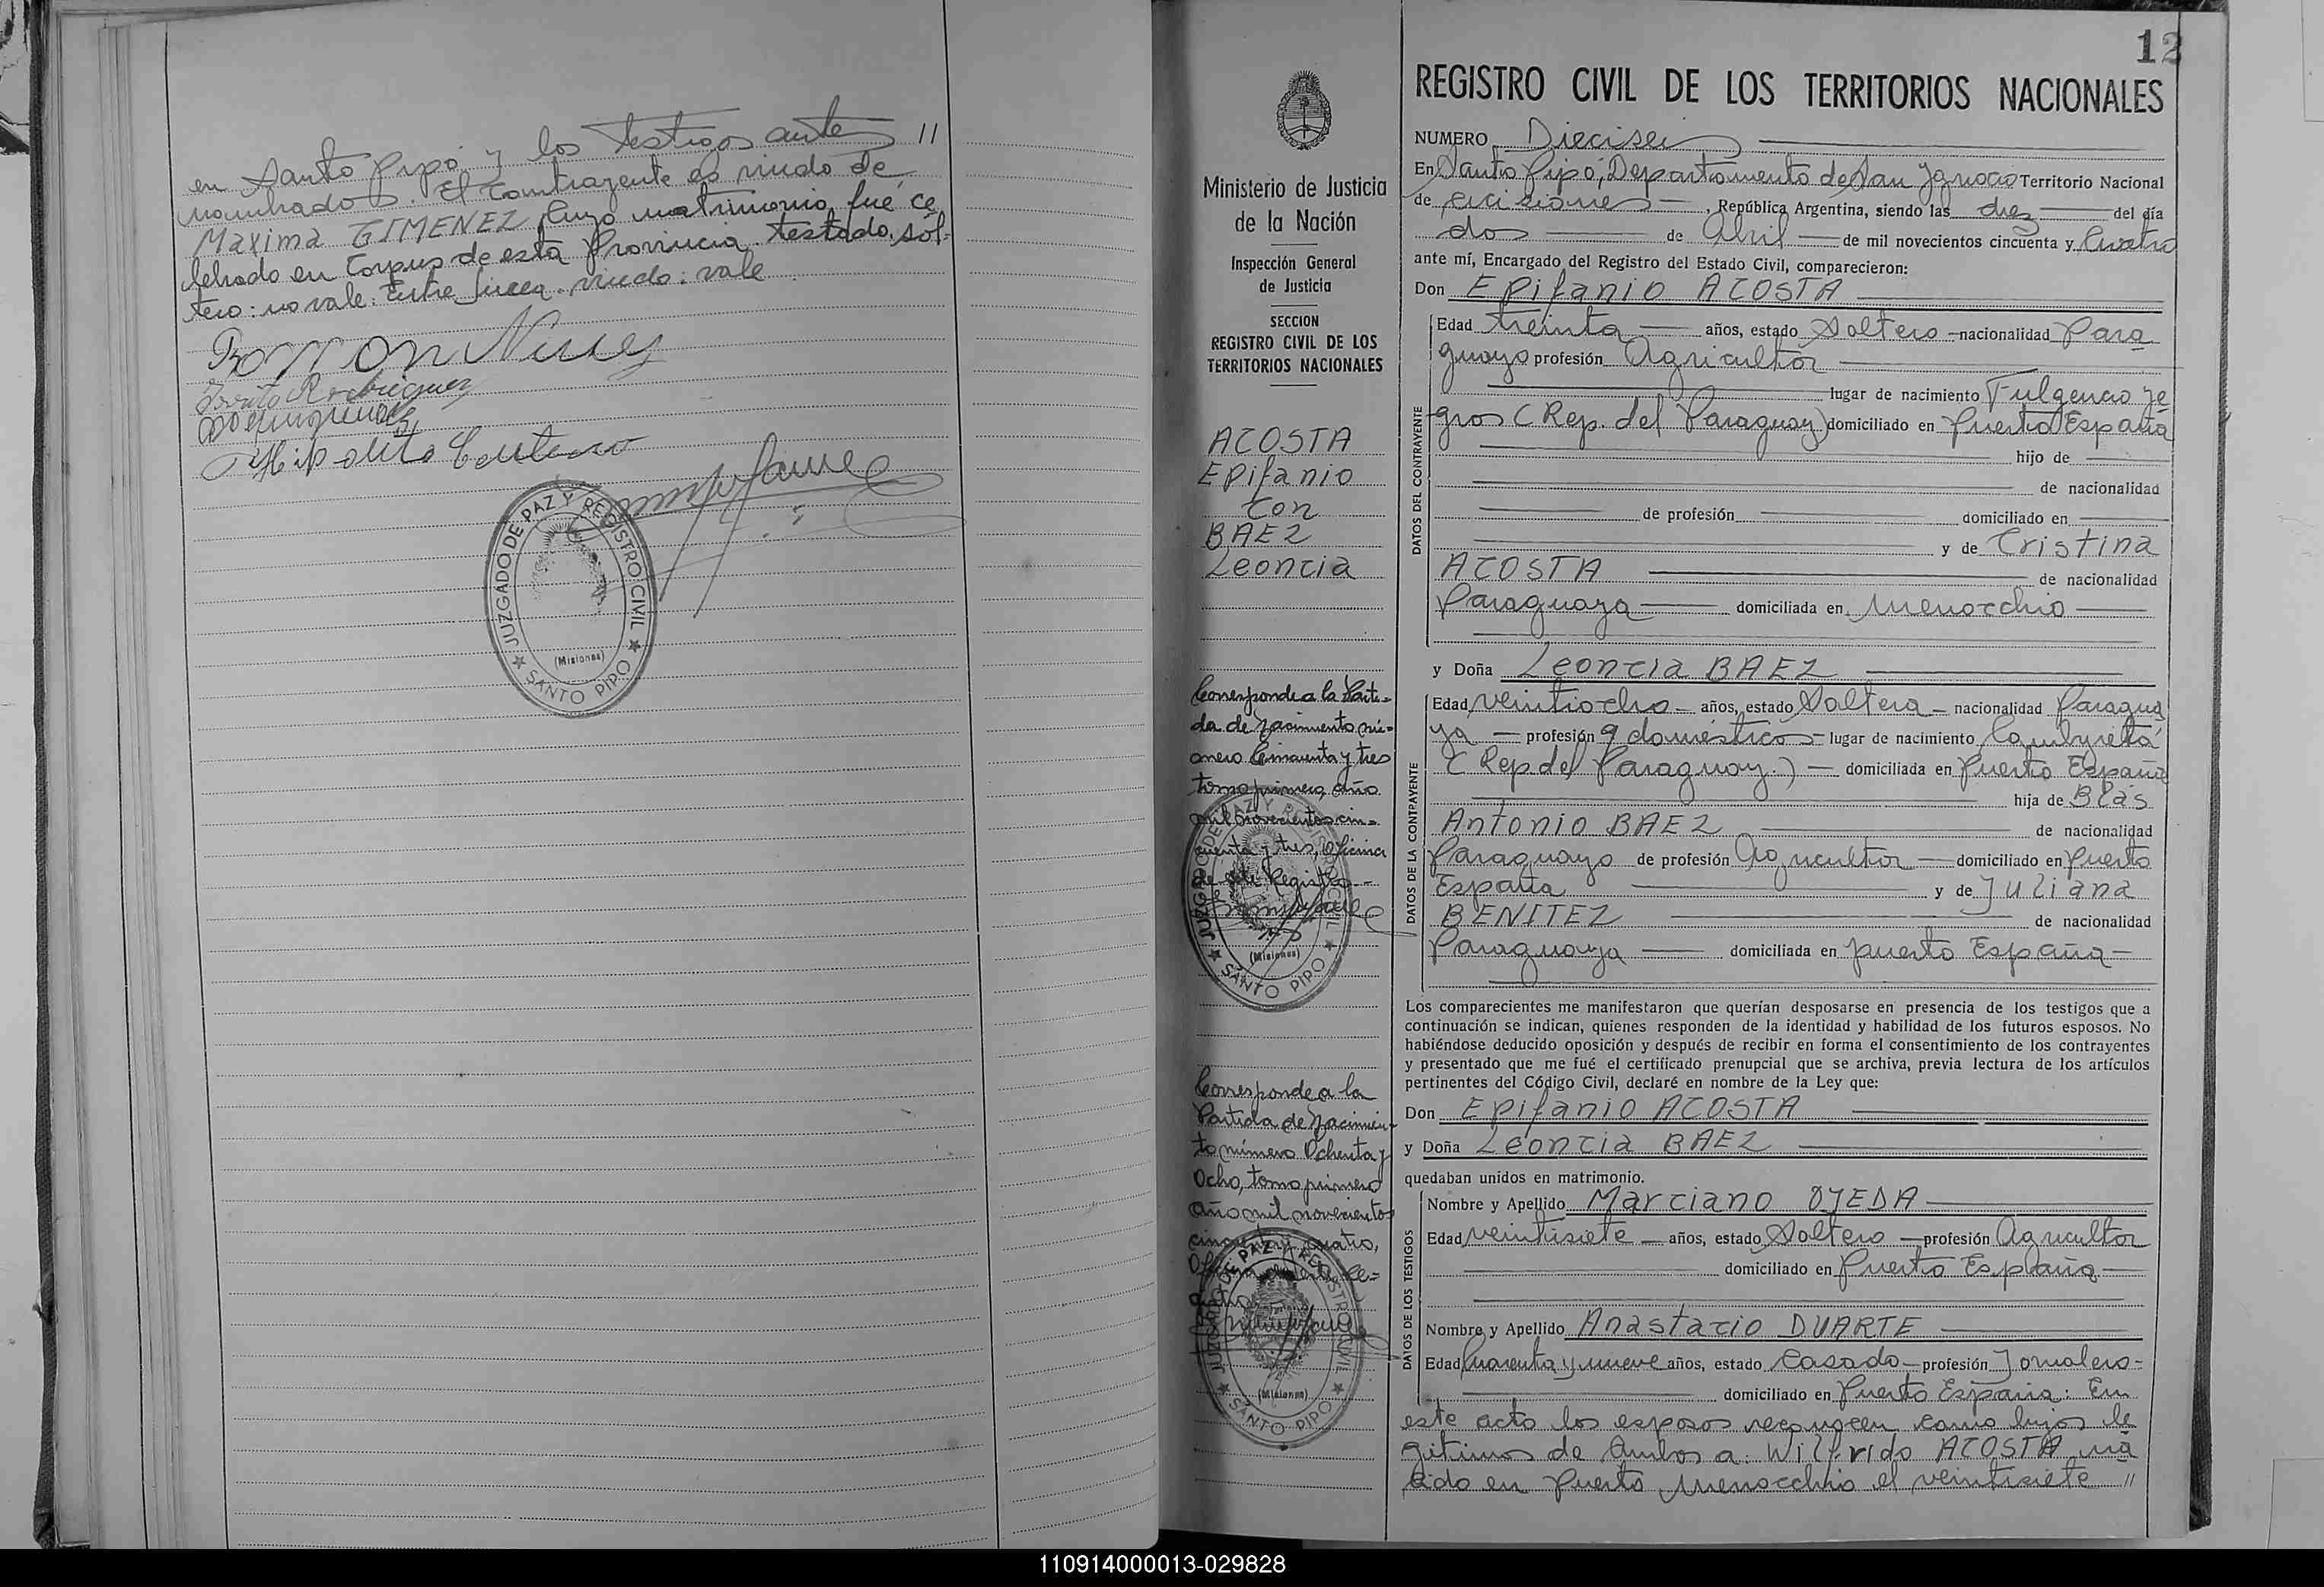 en Santo Pipó y los testigos antes //
nombrados. El Contrayente es viudo de
Maxima GIMENEZ, Cuyo matrimonio fué ce
lebrado en Corpus de esta Provincia. testado. sol-
tero: no vale. Entre linea. viudo: vale
Ramon Nuñez
Rodriguez
Hipolito
JUZGADO DE PAZ Y REGISTRO CIVIL
(Misiones)
SANTO PIPO
12
Ministerio de Justicia
de la Nación
Inspección General
de Justicia
SECCION
REGISTRO CIVIL DE LOS
TERRITORIOS NACIONALES
ACOSTA
Epifanio
con
BAEZ
Leoncia
Corresponde a la Parti-
da de Nacimiento nú-
mero Cincuenta y tres
tomo primero, año
mil novecientos cin-
cuenta y tres, Oficina
de este Registro.-
JUZGADO DE PAZ Y REGISTRO CIVIL
(Misiones)
SANTO PIPO
Corresponde a la
Partida de Nacimien-
to número Ochenta y
Ocho, tomo primero
año mil novecientos
cincuenta y cuatro,
Oficina de este Re-
gistro
JUZGADO DE PAZ Y REGISTRO CIVIL
(Misiones)
SANTO PIPO
REGISTRO CIVIL DE LOS TERRITORIOS NACIONALES
NUMERO Dieciseis
En Santo Pipó, Departamento de San Ygnacio Territorio Nacional
de Misiones, República Argentina, siendo las diez del día
dos de Abril de mil novecientos cincuenta y Cuatro
ante mí, Encargado del Registro del Estado Civil, comparecieron:
Don Epifanio ACOSTA
DATOS DEL CONTRAYENTE
Edad treinta años, estado Soltero nacionalidad Para
guayo profesión Agricultor
lugar de nacimiento Fulgencio Ye
gros (Rep. del Paraguay) domiciliado en Puerto España
hijo de
de nacionalidad
de profesión domiciliado en
y de Cristina
ACOSTA de nacionalidad
Paraguaya domiciliada en Menocchio
y Doña Leoncia BAEZ
DATOS DE LA CONTRAYENTE
Edad veintiocho años, estado Soltera nacionalidad Paragua
ya profesión q domésticos lugar de nacimiento Cambyretá
(Rep. del Paraguay.) domiciliada en Puerto España
hija de Blás
Antonio BAEZ de nacionalidad
Paraguayo de profesión Agricultor domiciliado en Puerto
España y de Juliana
BENITEZ de nacionalidad
Paraguaya domiciliada en puerto España
Los comparecientes me manifestaron que querían desposarse en presencia de los testigos que a
continuación se indican, quienes responden de la identidad y habilidad de los futuros esposos. No
habiéndose deducido oposición y después de recibir en forma el consentimiento de los contrayentes
y presentado que me fué el certificado prenupcial que se archiva, previa lectura de los artículos
pertinentes del Código Civil, declaré en nombre de la Ley que:
Don Epifanio ACOSTA
y Doña Leoncia BAEZ
quedaban unidos en matrimonio.
DATOS DE LOS TESTIGOS
Nombre y Apellido Marciano OJEDA
Edad veintisiete años, estado Soltero profesión Agricultor
domiciliado en Puerto España
Nombre y Apellido Anastacio DUARTE
Edad Cuarenta y nueve años, estado Casado profesión Jornalero-
domiciliado en Puerto España: En
este acto los esposos reconocen como hijos le
gitimos de Ambos a: Wilfrido ACOSTA na
cido en Puerto Menocchio el veintisiete //
110914000013-029828